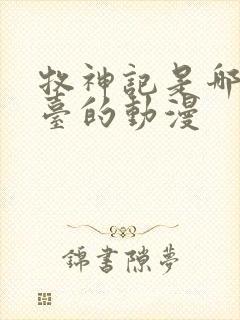 牧神記是哪
臺的動漫
錦書隙夢